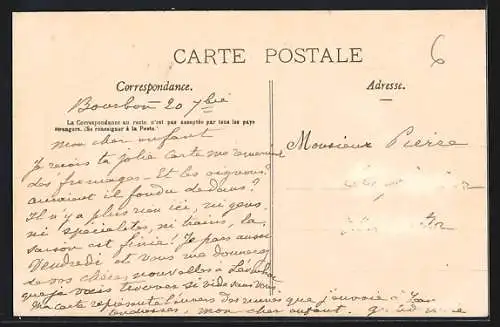 CARTE POSTALE
6
Correspondance.
Adresse.
Bourbon 20 7bre
La Correspondance au recto n'est pas acceptée par tous les pays
étrangers. (Se renseigner à la Poste)
mon cher enfant
Monsieur Pierre
Je reçois ta jolie carte me ramenant
des fromages - Et les oignons?
auraient il fondu dedans?
Il n'y a plus rien ici, ni gens,
ni spécialités, ni trains, la
saison est finie! Je pars aussi
Vendredi et vous me donnerez
de vos chères nouvelles à
que je vais trouver si vide sans vous
Ma carte représente l'univers des que j'envoie à
mon cher enfant.